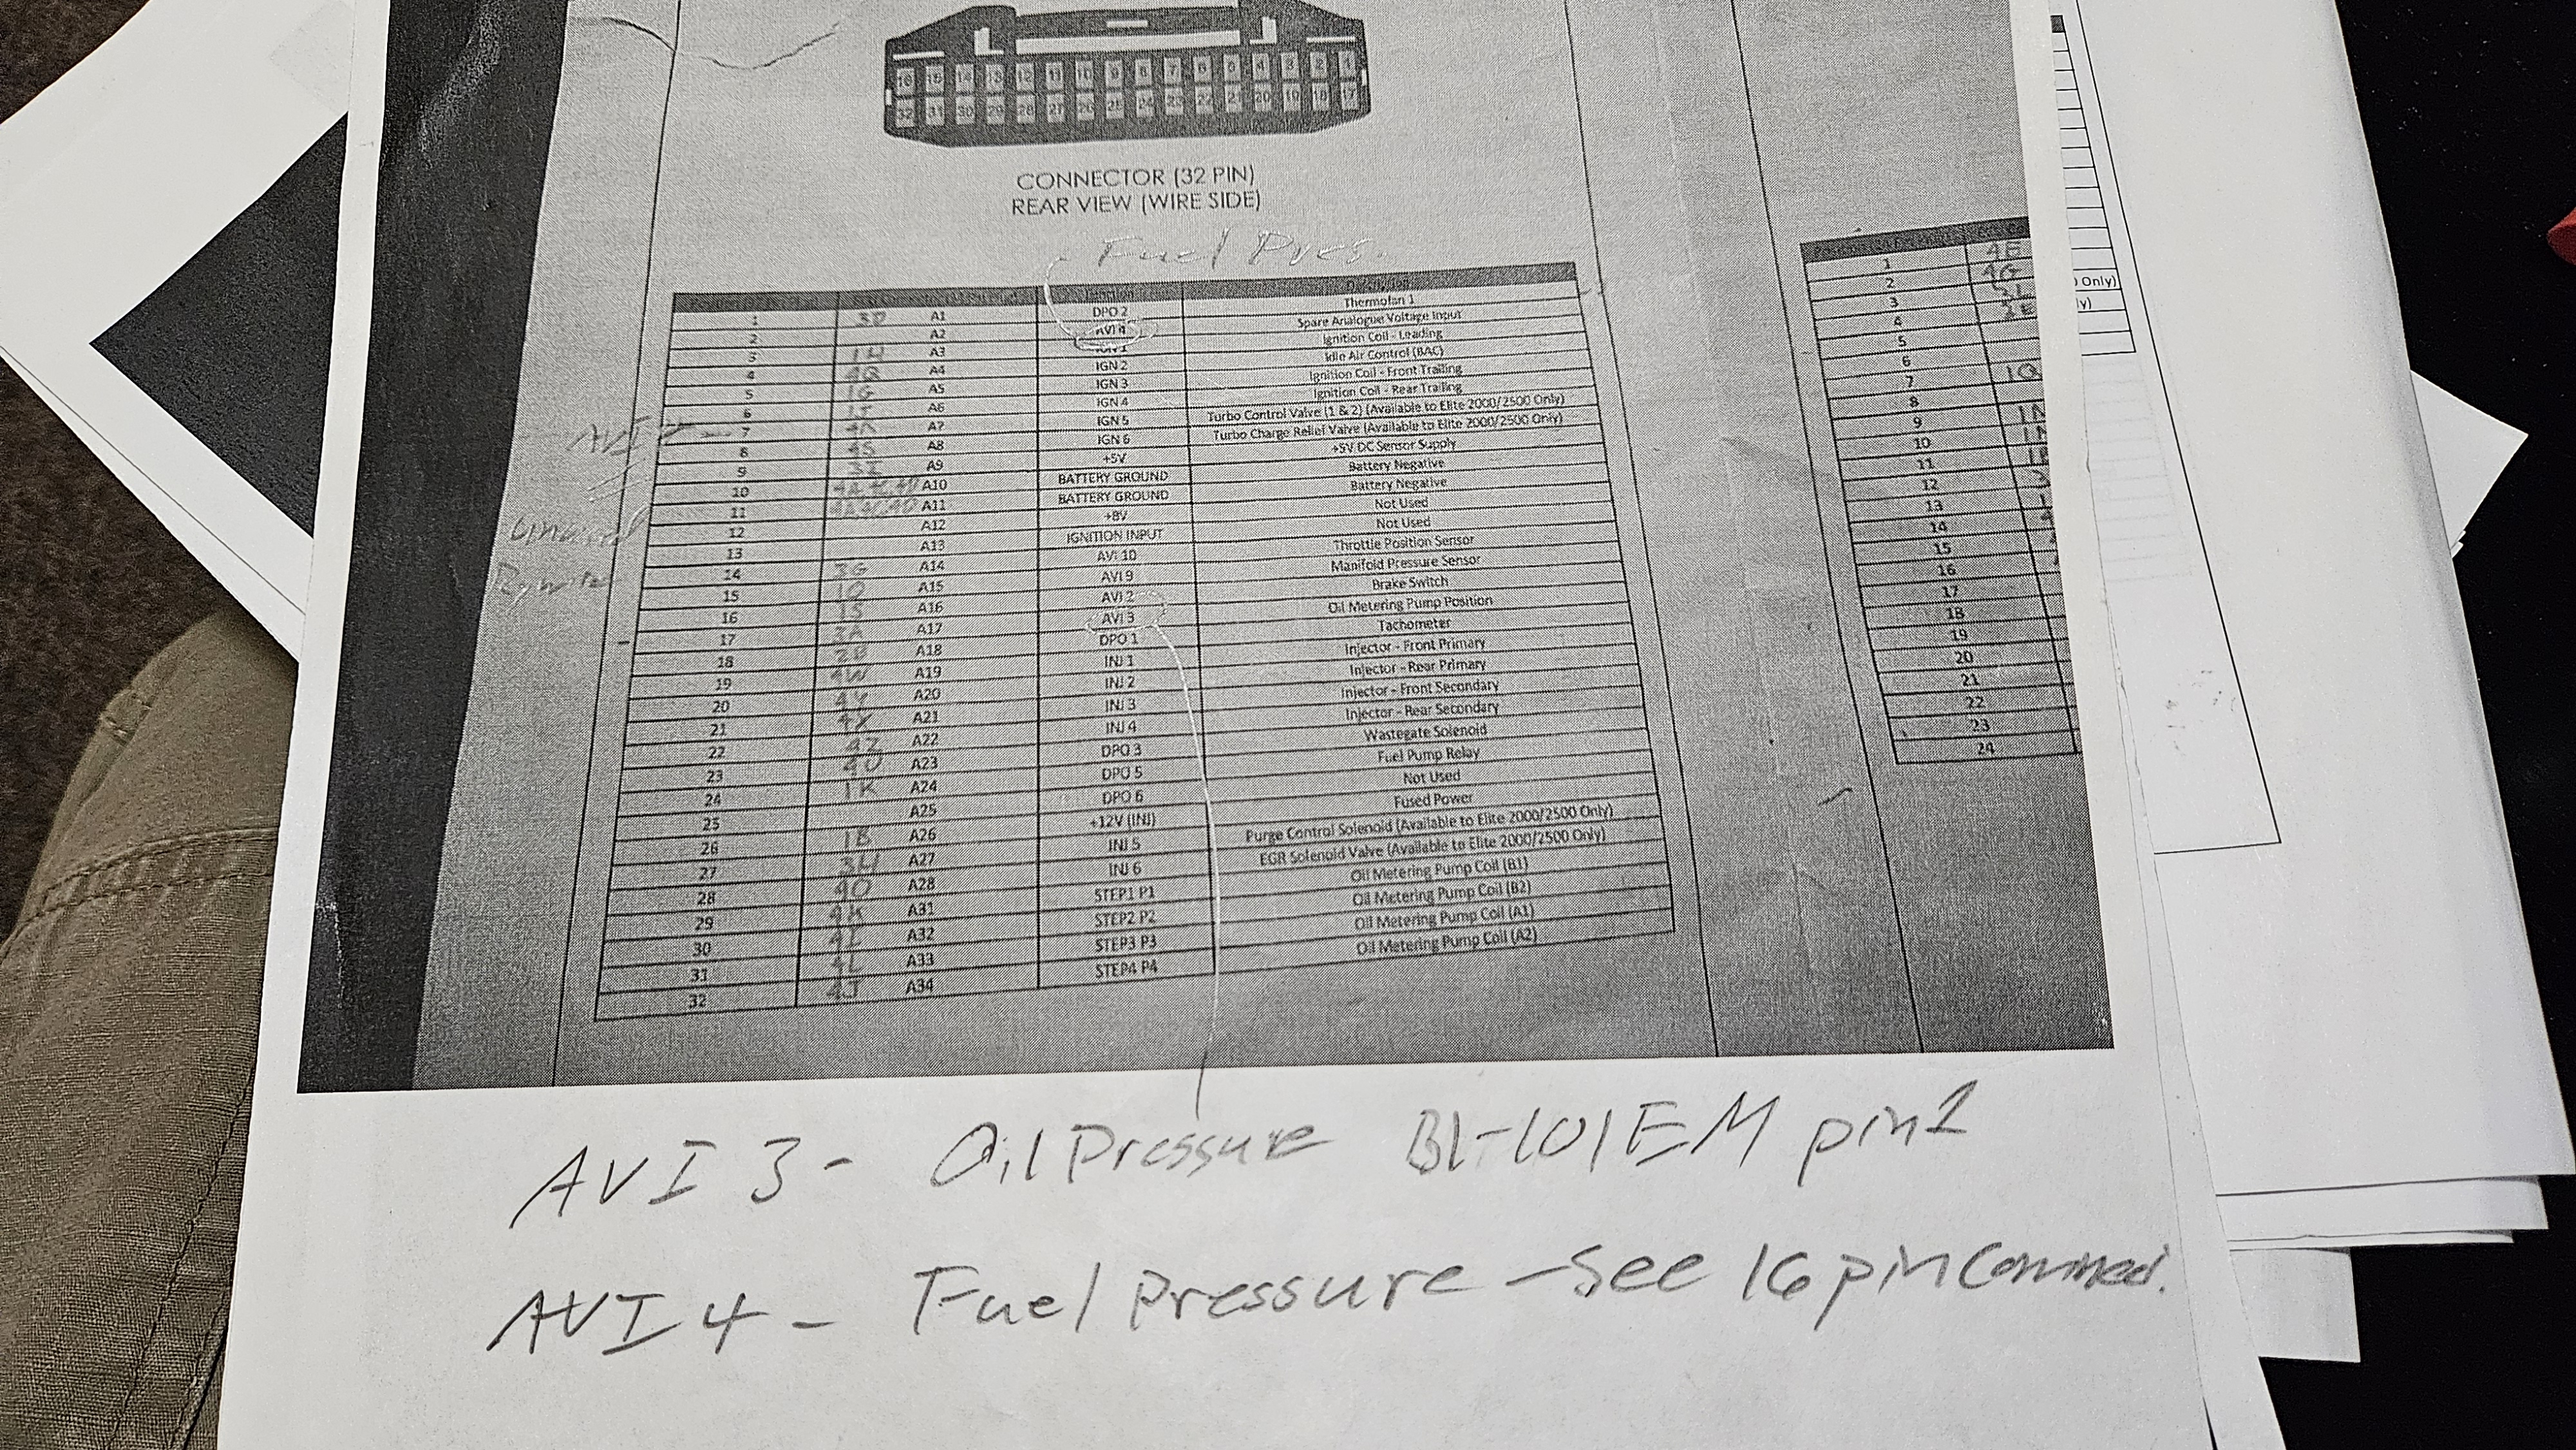 16 15 14 13 12 11 10 9 8 7 6 5 4 3 2 1
32 31 30 29 28 27 26 25 24 23 22 21 20 19 18 17
CONNECTOR (32 PIN)
REAR VIEW (WIRE SIDE)
Fuel Pres.
Function
1 3D A1 DPO 2 Thermofan 1
2 A2 AVI 4 Spare Analogue Voltage Input
3 1H A3 IGN 1 Ignition Coil - Leading
4 4Q A4 IGN 2 Idle Air Control (BAC)
5 1G A5 IGN 3 Ignition Coil - Front Trailing
6 A6 IGN 4 Ignition Coil - Rear Trailing
7 A7 IGN 5 Turbo Control Valve (1 & 2) (Available to Elite 2000/2500 Only)
8 4S A8 IGN 6 Turbo Charge Relief Valve (Available to Elite 2000/2500 Only)
9 3I A9 +5V +5V DC Sensor Supply
10 A10 BATTERY GROUND Battery Negative
11 A11 BATTERY GROUND Battery Negative
12 A12 +8V Not Used
13 A13 IGNITION INPUT Not Used
14 3G A14 AVI 10 Throttle Position Sensor
15 1O A15 AVI 9 Manifold Pressure Sensor
16 1S A16 AVI 2 Brake Switch
17 3A A17 AVI 3 Oil Metering Pump Position
18 A18 DPO 1 Tachometer
19 4W A19 INJ 1 Injector - Front Primary
20 4Y A20 INJ 2 Injector - Rear Primary
21 4X A21 INJ 3 Injector - Front Secondary
22 4Z A22 INJ 4 Injector - Rear Secondary
23 4U A23 DPO 3 Wastegate Solenoid
24 1K A24 DPO 5 Fuel Pump Relay
25 A25 DPO 6 Not Used
26 1B A26 +12V (INJ) Fused Power
27 3H A27 INJ 5 Purge Control Solenoid (Available to Elite 2000/2500 Only)
28 4O A28 INJ 6 EGR Solenoid Valve (Available to Elite 2000/2500 Only)
29 4K A31 STEP1 P1 Oil Metering Pump Coil (B1)
30 4I A32 STEP2 P2 Oil Metering Pump Coil (B2)
31 4L A33 STEP3 P3 Oil Metering Pump Coil (A1)
32 4J A34 STEP4 P4 Oil Metering Pump Coil (A2)
1 4E
2 4G
3
4
5
6
7 1Q
8
9 1N
10
11
12
13
14
15
16
17
18
19
20
21
22
23
24
Only)
ly)
AVI 3 - Oil Pressure B1-101EM pin 1
AVI 4 - Fuel Pressure - See 16 pin Connect.